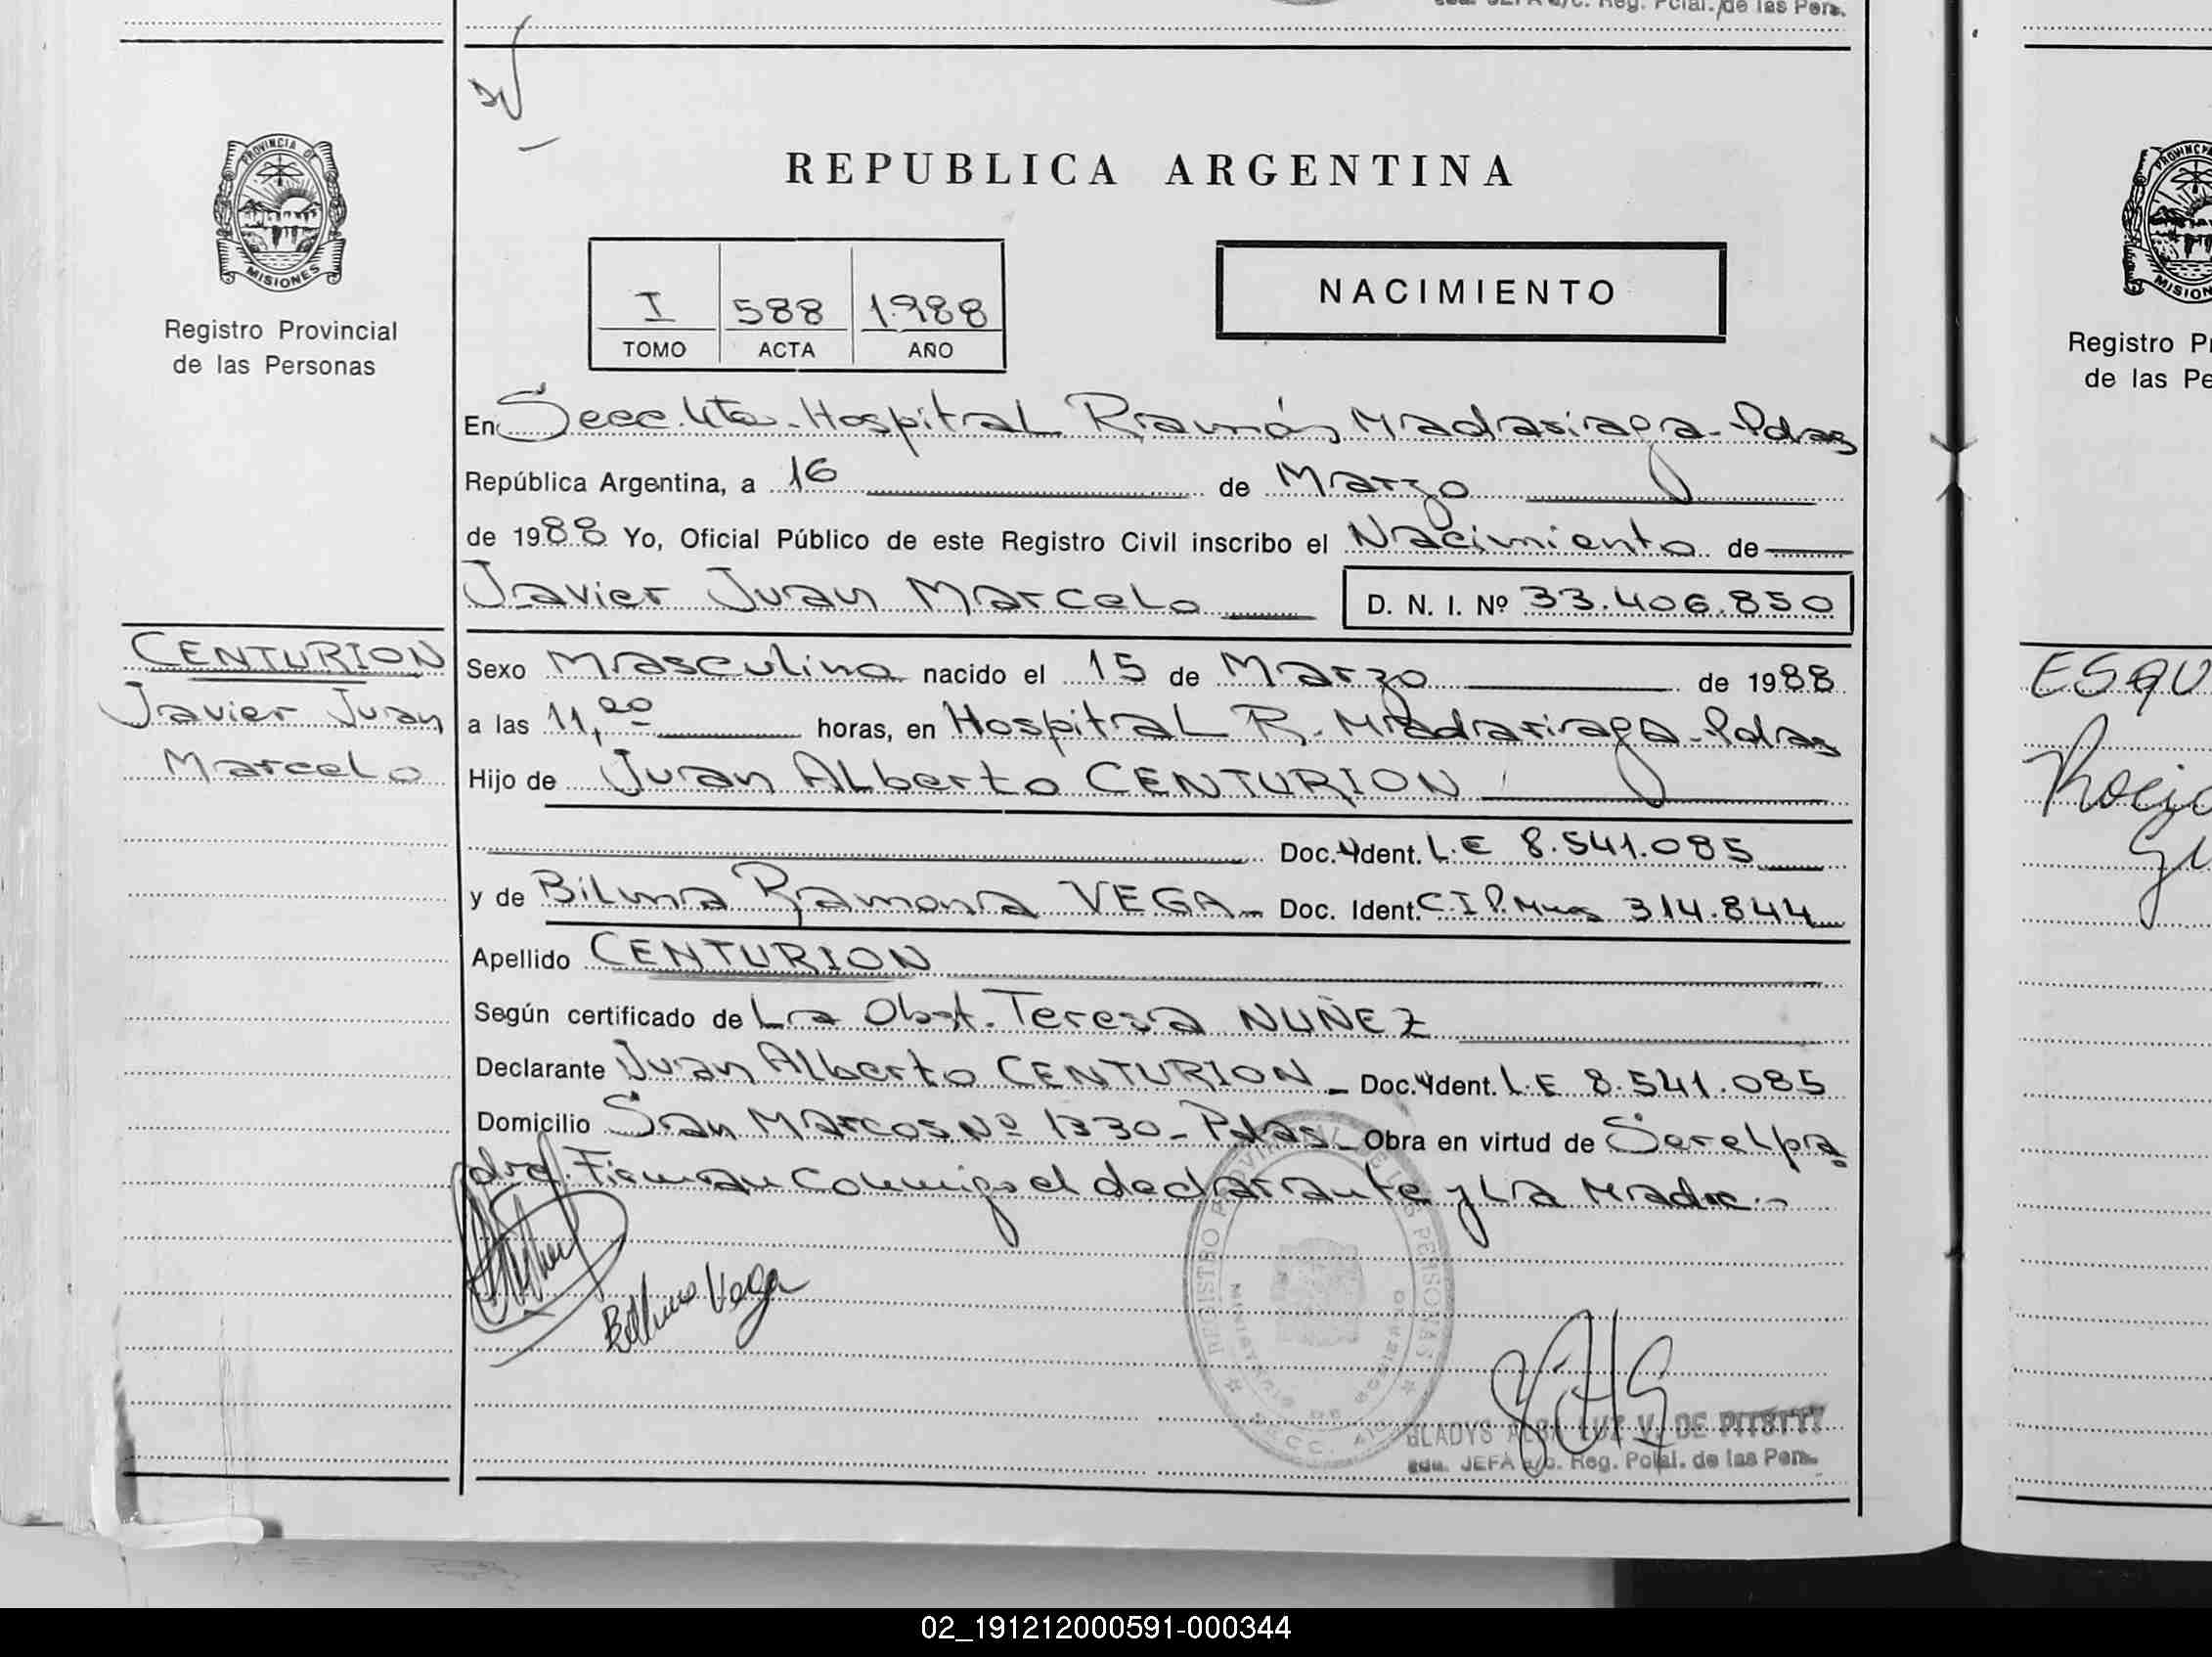 Reg. Pcial. de las Pers.
PROVINCIA DE
MISIONES
Registro Provincial
de las Personas
CENTURION
Javier Juan
Marcelo
REPUBLICA ARGENTINA
I 588 1.988
TOMO ACTA AÑO
NACIMIENTO
En Secc. 4ta. Hospital Ramón Madariaga - Pdas
República Argentina, a 16 de Marzo
de 1988 Yo, Oficial Público de este Registro Civil inscribo el Nacimiento de
Javier Juan Marcelo D. N. I. Nº 33.406.850
Sexo Masculino nacido el 15 de Marzo de 1988
a las 11,20 horas, en Hospital R. Madariaga - Pdas
Hijo de Juan Alberto CENTURION
Doc. Ident. L.E 8.541.085
y de Bilma Ramona VEGA - Doc. Ident. C I P. Mnes 314.844
Apellido CENTURION
Según certificado de La Obst. Teresa NUÑEZ
Declarante Juan Alberto CENTURION - Doc. Ident. L.E 8.541.085
Domicilio San Marcos Nº 1330 - Pdas - Obra en virtud de Ser el pa
dre. Firman conmigo el declarante y La Madre.-
Vega
REGISTRO PROVINCIAL DE LAS PERSONAS
MINISTERIO DE GOBIERNO
SECC. 4ta
GLADYS ALBA LUZ V. DE
JEFA a/c. Reg. Pcial. de las Pers.
MISION
Registro P
de las Pe
ESQU
Rocio
02_191212000591-000344